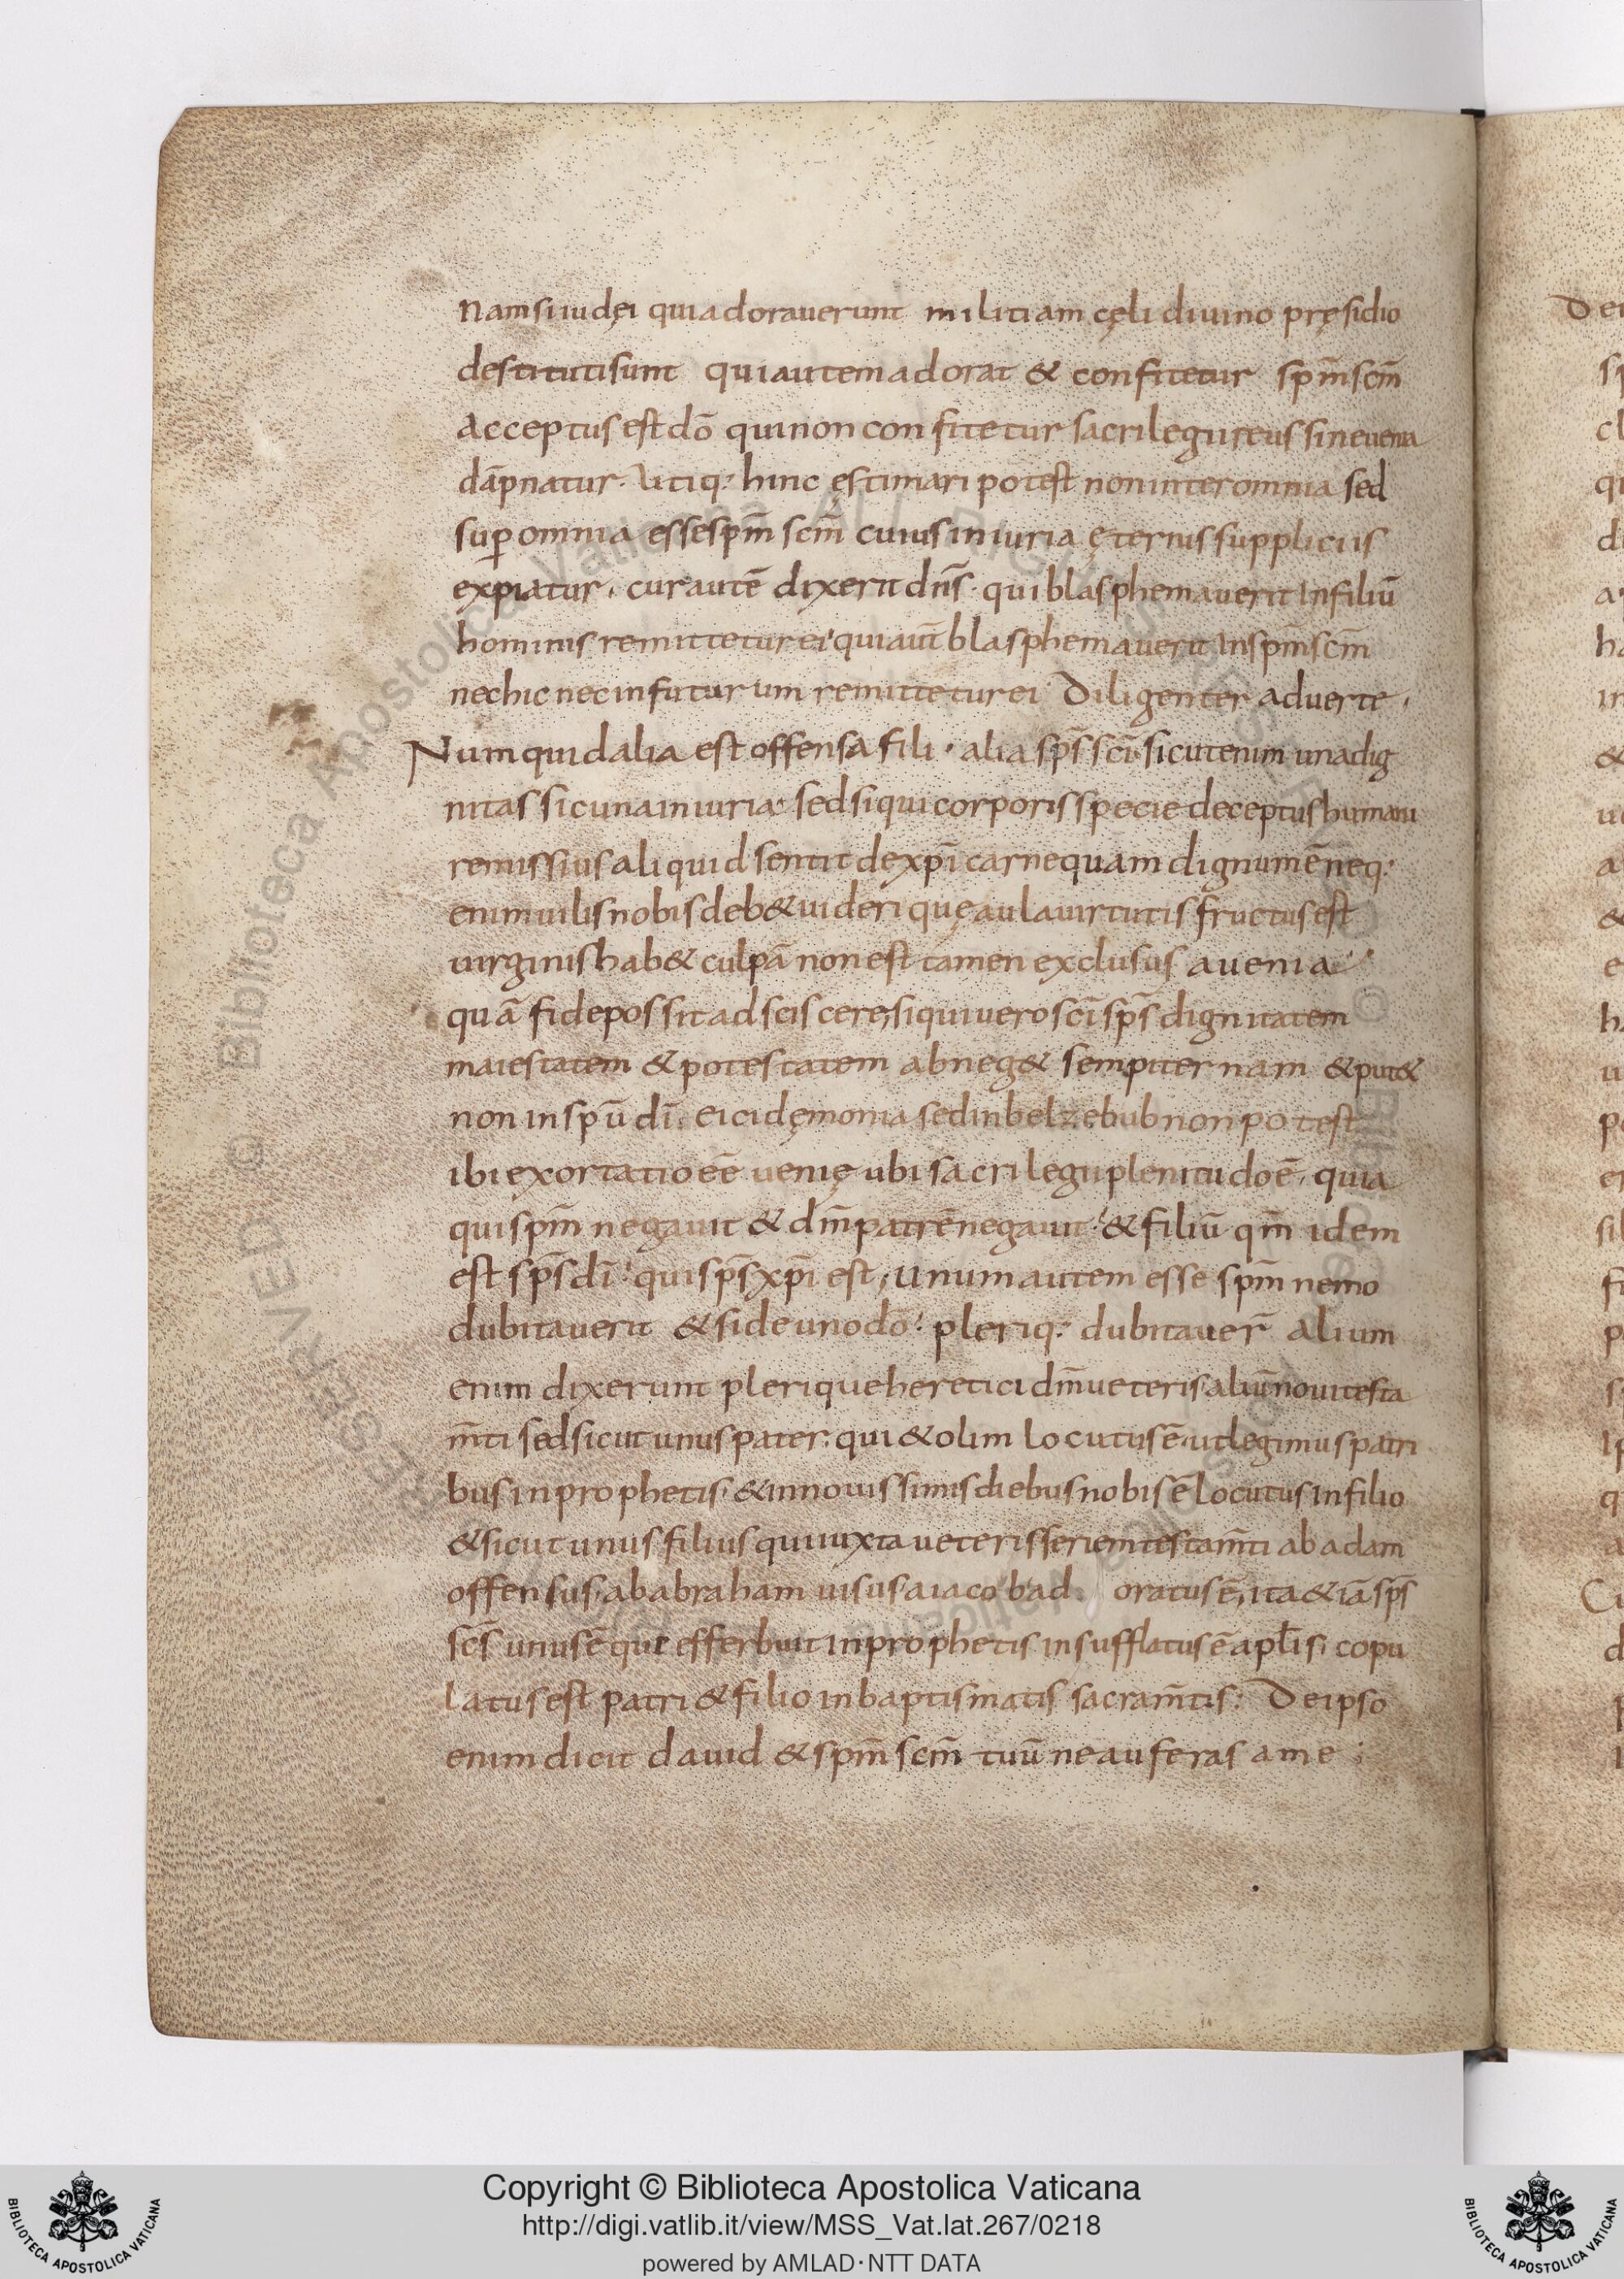 Nam si iudęi qui adorauerunt militiam cęli diuino pręsidio
destituti sunt qui autem adorat & confitetur spm̄ scm̄
acceptus est dō qui non confitetur sacrilegii reus sine uenia
dāpnatur. Utiq: hinc ęstimari potest non inter omnia sed
sup̄ omnia esse spm̄ scm̄ cuius iniuria ęternis suppliciis
expiatur. cur autē dixerit dn̄s. qui blasphemauerit in filiū
hominis remittetur ei qui aut̄ blasphemauerit in spm̄ scm̄
nec hic nec in futurum remittetur ei Diligenter aduerte.
Numquid alia est offensa fili. alia sps̄ sci̅ sicut enim una dig
nitas sic una iniuria. sed si qui corporis specie deceptus humani
remissius aliquid sentit de xp̄i carne quam dignum ē neq:
enim uilis nobis deb& uideri quę aula uirtutis fructus est
uirginis hab& culpā non est tamen exclusus a uenia
quā fide possit adsciscere, si qui uero sci̅ sps̄ dignitatem
maiestatem & potestatem abneg& sempiternam & put&
non in spū dī. eici dęmonia sed in belzebub non potest
ibi exortatio eē uenię ubi sacrilegii plenitudo ē. quia
qui spm̄ negauit & dm̄ patrē negauit. & filiū qm̄ idem
est sps̄ dī. qui sps̄ xp̄i est, unum autem esse spm̄ nemo
dubitauerit & si de uno dō. pleriq: dubitauer̄ alium
enim dixerunt plerique heretici dm̄ ueteris aliū noui testa
m̄ti sed sicut unus pater. qui & olim locutus ē. ut legimus patri
bus in prophetis. & in nouissimis diebus nobis ē locutus in filio
& sicut unus filius qui iuxta ueteris seriem testam̄ti ab adam
offensus. ab abraham uisus. a iacob ad oratus ē, ita & iā sps̄
scs̄ unus ē qui efferbuit in prophetis insufflatus ē apl̄is. copu
latus est patri & filio in baptismatis sacram̄tis. De ipso
enim dicit dauid & spm̄ scm̄ tuū ne auferas a me;
Copyright © Biblioteca Apostolica Vaticana
http://digi.vatlib.it/view/MSS_Vat.lat.267/0218
powered by AMLAD·NTT DATA
BIBLIOTECA APOSTOLICA VATICANA
BIBLIOTECA APOSTOLICA VATICANA